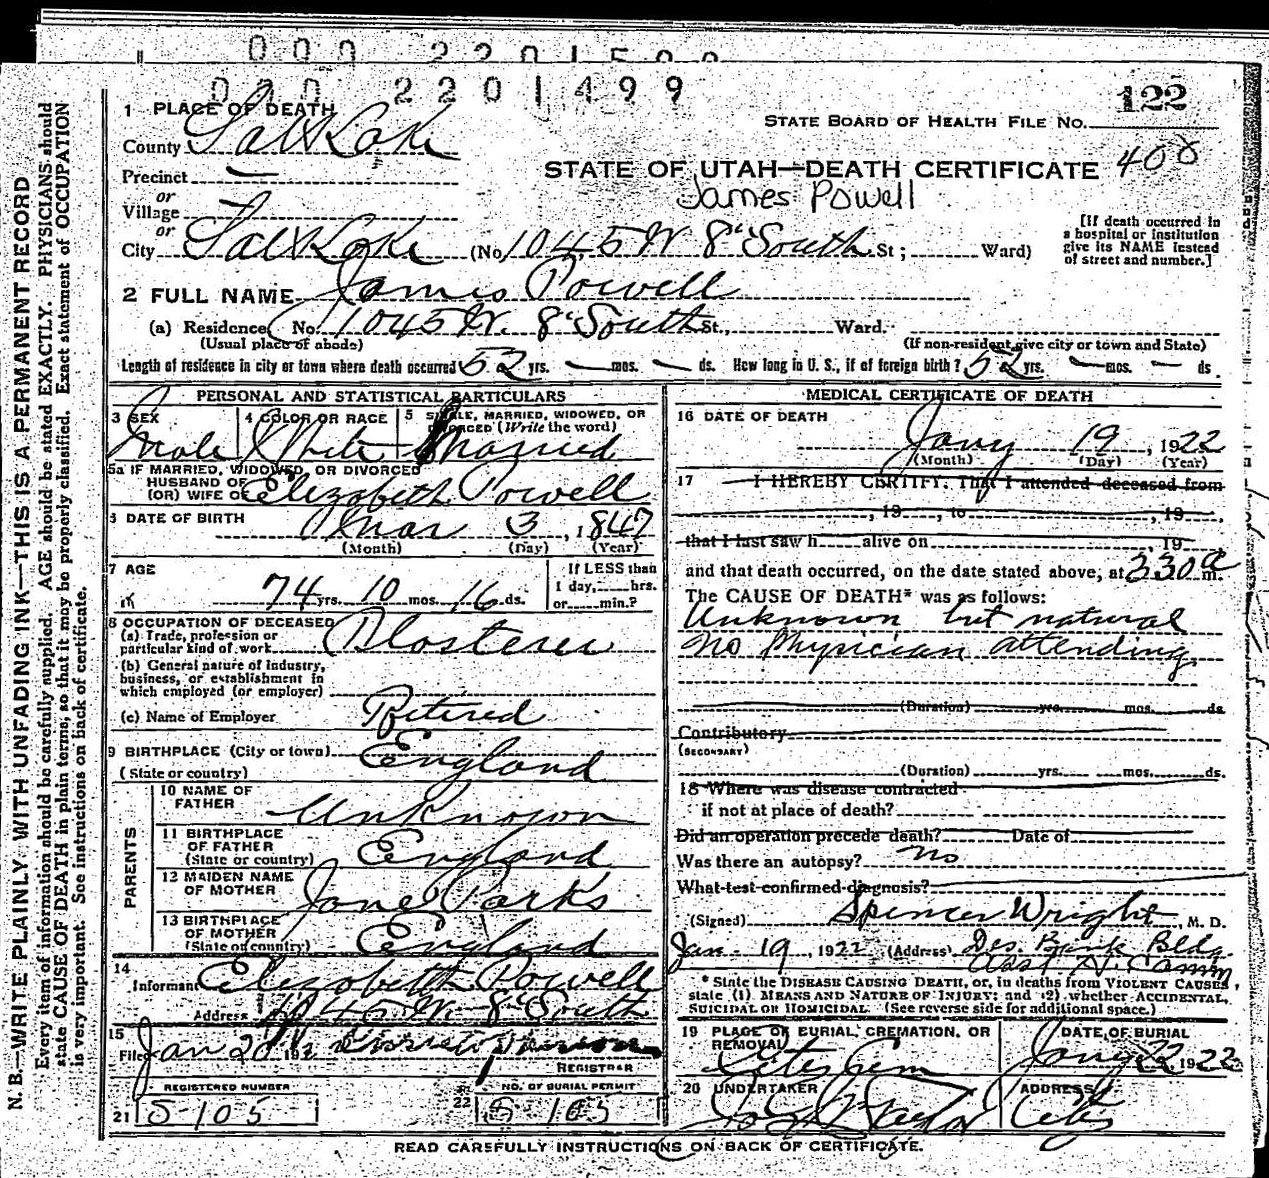 000 2201499
122
1 PLACE OF DEATH
STATE BOARD OF HEALTH FILE NO.
County Salt Lake
STATE OF UTAH—DEATH CERTIFICATE 400
Precinct —
James Powell
or
Village
or
City Salt Lake (No. 1045 W 8" South St; Ward)
[If death occurred in
a hospital or institution
give its NAME instead
of street and number.]
2 FULL NAME James Powell
(a) Residence No. 1045 W. 8" South St., Ward.
(Usual place of abode)
(If non-resident give city or town and State)
Length of residence in city or town where death occurred 52 yrs. — mos. — ds. How long in U. S., if of foreign birth? 52 yrs. — mos. — ds.
PERSONAL AND STATISTICAL PARTICULARS
3 SEX Male
4 COLOR OR RACE White
5 SINGLE, MARRIED, WIDOWED, OR
DIVORCED (Write the word)
Married
5a IF MARRIED, WIDOWED, OR DIVORCED
HUSBAND OF
(OR) WIFE OF Elizabeth Powell
6 DATE OF BIRTH Mar 3, 1847
(Month) (Day) (Year)
7 AGE
74 yrs. 10 mos. 16 ds.
If LESS than
1 day, hrs.
or min.?
8 OCCUPATION OF DECEASED
(a) Trade, profession or
particular kind of work Plasterer
(b) General nature of industry,
business, or establishment in
which employed (or employer)
(c) Name of Employer Retired
9 BIRTHPLACE (City or town)
(State or country) England
PARENTS
10 NAME OF
FATHER Unknown
11 BIRTHPLACE
OF FATHER
(State or country) England
12 MAIDEN NAME
OF MOTHER Jane Parks
13 BIRTHPLACE
OF MOTHER
(State or country) England
14
Informant Elizabeth Powell
Address 1045 W. 8" South
15
Filed Jan 20 192
REGISTRAR
REGISTERED NUMBER
21 S-105
NO. OF BURIAL PERMIT
22 S-105
MEDICAL CERTIFICATE OF DEATH
16 DATE OF DEATH
Jany 19, 1922
(Month) (Day) (Year)
17 I HEREBY CERTIFY, That I attended deceased from
, 19 , to , 19 ,
that I last saw h alive on , 19
and that death occurred, on the date stated above, at 330 a m.
The CAUSE OF DEATH* was as follows:
Unknown but natural
No Physician attending
(Duration) yrs. mos. ds.
Contributory
(SECONDARY)
(Duration) yrs. mos. ds.
18 Where was disease contracted
if not at place of death?
Did an operation precede death? Date of
Was there an autopsy? no
What test confirmed diagnosis?
(Signed) Spencer Wright, M. D.
Jan-19, 1922 (Address) Des. Bank Bldg.
Asst H. Comm
* State the DISEASE CAUSING DEATH, or, in deaths from VIOLENT CAUSES,
state (1) MEANS AND NATURE OF INJURY; and (2) whether ACCIDENTAL,
SUICIDAL OR HOMICIDAL. (See reverse side for additional space.)
19 PLACE OF BURIAL, CREMATION, OR
REMOVAL
City Cem
DATE OF BURIAL
Jany 22 1922
20 UNDERTAKER
Taylor
ADDRESS
City
READ CAREFULLY INSTRUCTIONS ON BACK OF CERTIFICATE.
N. B.—WRITE PLAINLY WITH UNFADING INK—THIS IS A PERMANENT RECORD
Every item of information should be carefully supplied. AGE should be stated EXACTLY. PHYSICIANS should
state CAUSE OF DEATH in plain terms, so that it may be properly classified. Exact statement of OCCUPATION
is very important. See instructions on back of certificate.